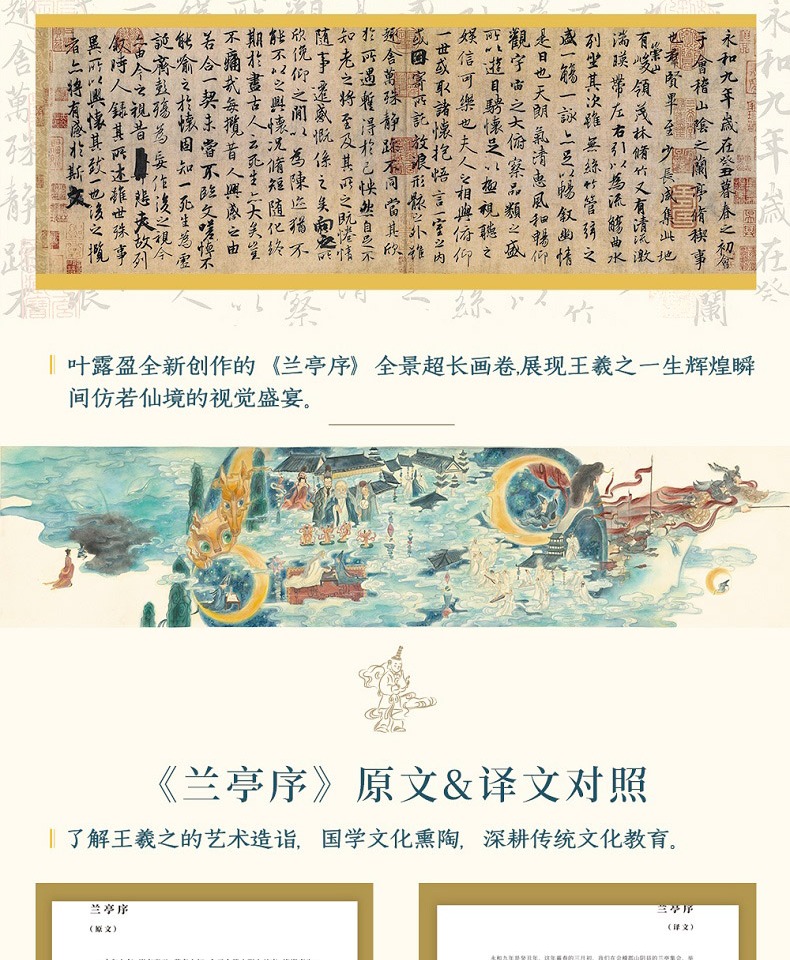 永和九年歲在癸丑暮春之初會
于會稽山陰之蘭亭脩稧事
也羣賢畢至少長咸集此地
有崇山峻領茂林脩竹又有清流激
湍暎帶左右引以為流觴曲水
列坐其次雖無絲竹管弦之
盛一觴一詠亦足以暢敘幽情
是日也天朗氣清惠風和暢仰
觀宇宙之大俯察品類之盛
所以遊目騁懷足以極視聽之
娛信可樂也夫人之相與俯仰
一世或取諸懷抱悟言一室之內
或因寄所託放浪形骸之外雖
趣舍萬殊靜躁不同當其欣
於所遇蹔得於己怏然自足不
知老之將至及其所之既惓情
隨事遷感慨係之矣向之所
欣俛仰之間以為陳迹猶不
能不以之興懷況脩短隨化終
期於盡古人云死生亦大矣豈
不痛哉每攬昔人興感之由
若合一契未嘗不臨文嗟悼不
能喻之於懷固知一死生為虛
誕齊彭殤為妄作後之視今
亦由今之視昔悲夫故列
敘時人錄其所述雖世殊事
異所以興懷其致一也後之攬
者亦將有感於斯文
叶露盈全新创作的《兰亭序》全景超长画卷,展现王羲之一生辉煌瞬
间仿若仙境的视觉盛宴。
《兰亭序》原文&译文对照
了解王羲之的艺术造诣，国学文化熏陶，深耕传统文化教育。
兰亭序
（原文）
兰亭序
（译文）
永和九年是癸丑年，这年暮春的三月初，我们在会稽郡山阴县的兰亭集会，举